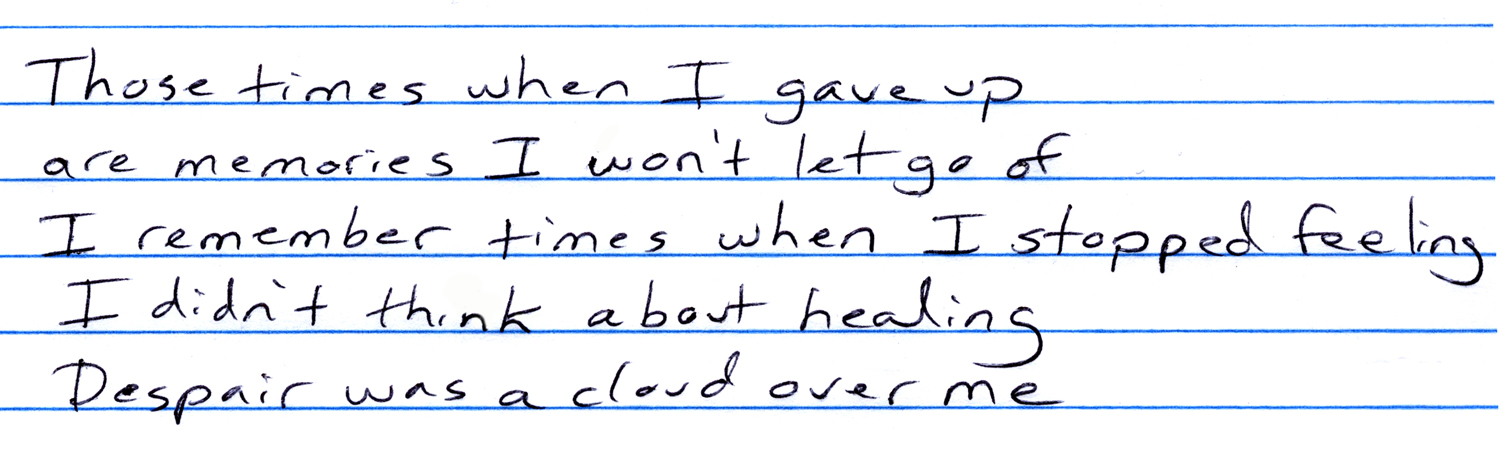 Those times when I gave up
are memories I won't let go of
I remember times when I stopped feeling
I didn't think about healing
Despair was a cloud over me